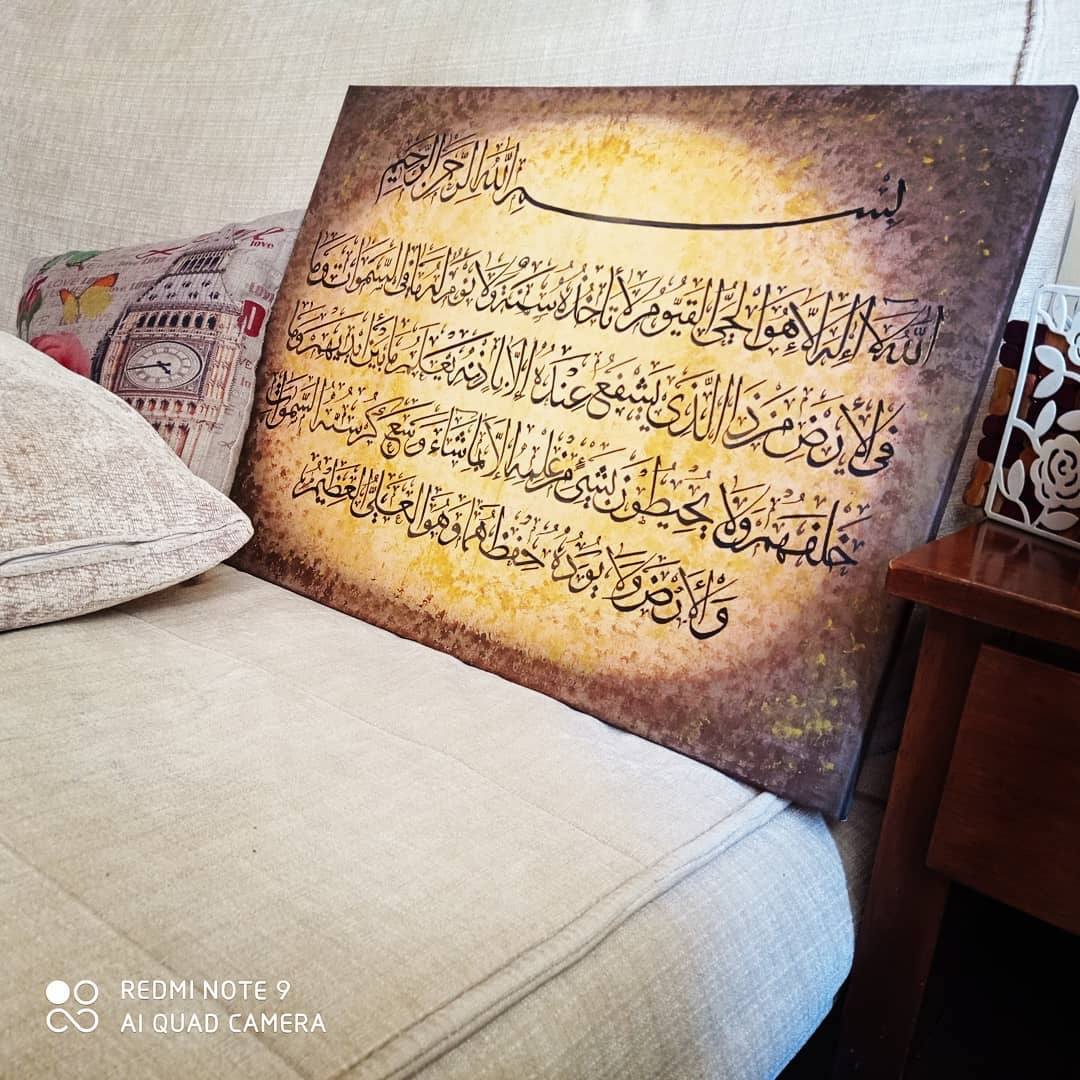 بِسْمِ اللهِ الرَّحْمٰنِ الرَّحِيْمِ
اَللهُ لَا إِلٰهَ إِلَّا هُوَ الْحَيُّ الْقَيُّومُ لَا تَأْخُذُهُ سِنَةٌ وَلَا نَوْمٌ لَهُ مَا فِى السَّمٰوَاتِ وَمَا
فِى الْأَرْضِ مَنْ ذَا الَّذِى يَشْفَعُ عِنْدَهُ إِلَّا بِإِذْنِهِ يَعْلَمُ مَا بَيْنَ أَيْدِيْهِمْ وَمَا
خَلْفَهُمْ وَلَا يُحِيْطُوْنَ بِشَىْءٍ مِنْ عِلْمِهِ إِلَّا بِمَا شَاءَ وَسِعَ كُرْسِيُّهُ السَّمٰوَاتِ
وَالْأَرْضَ وَلَا يَئُوْدُهُ حِفْظُهُمَا وَهُوَ الْعَلِىُّ الْعَظِيْمُ
love
REDMI NOTE 9
AI QUAD CAMERA